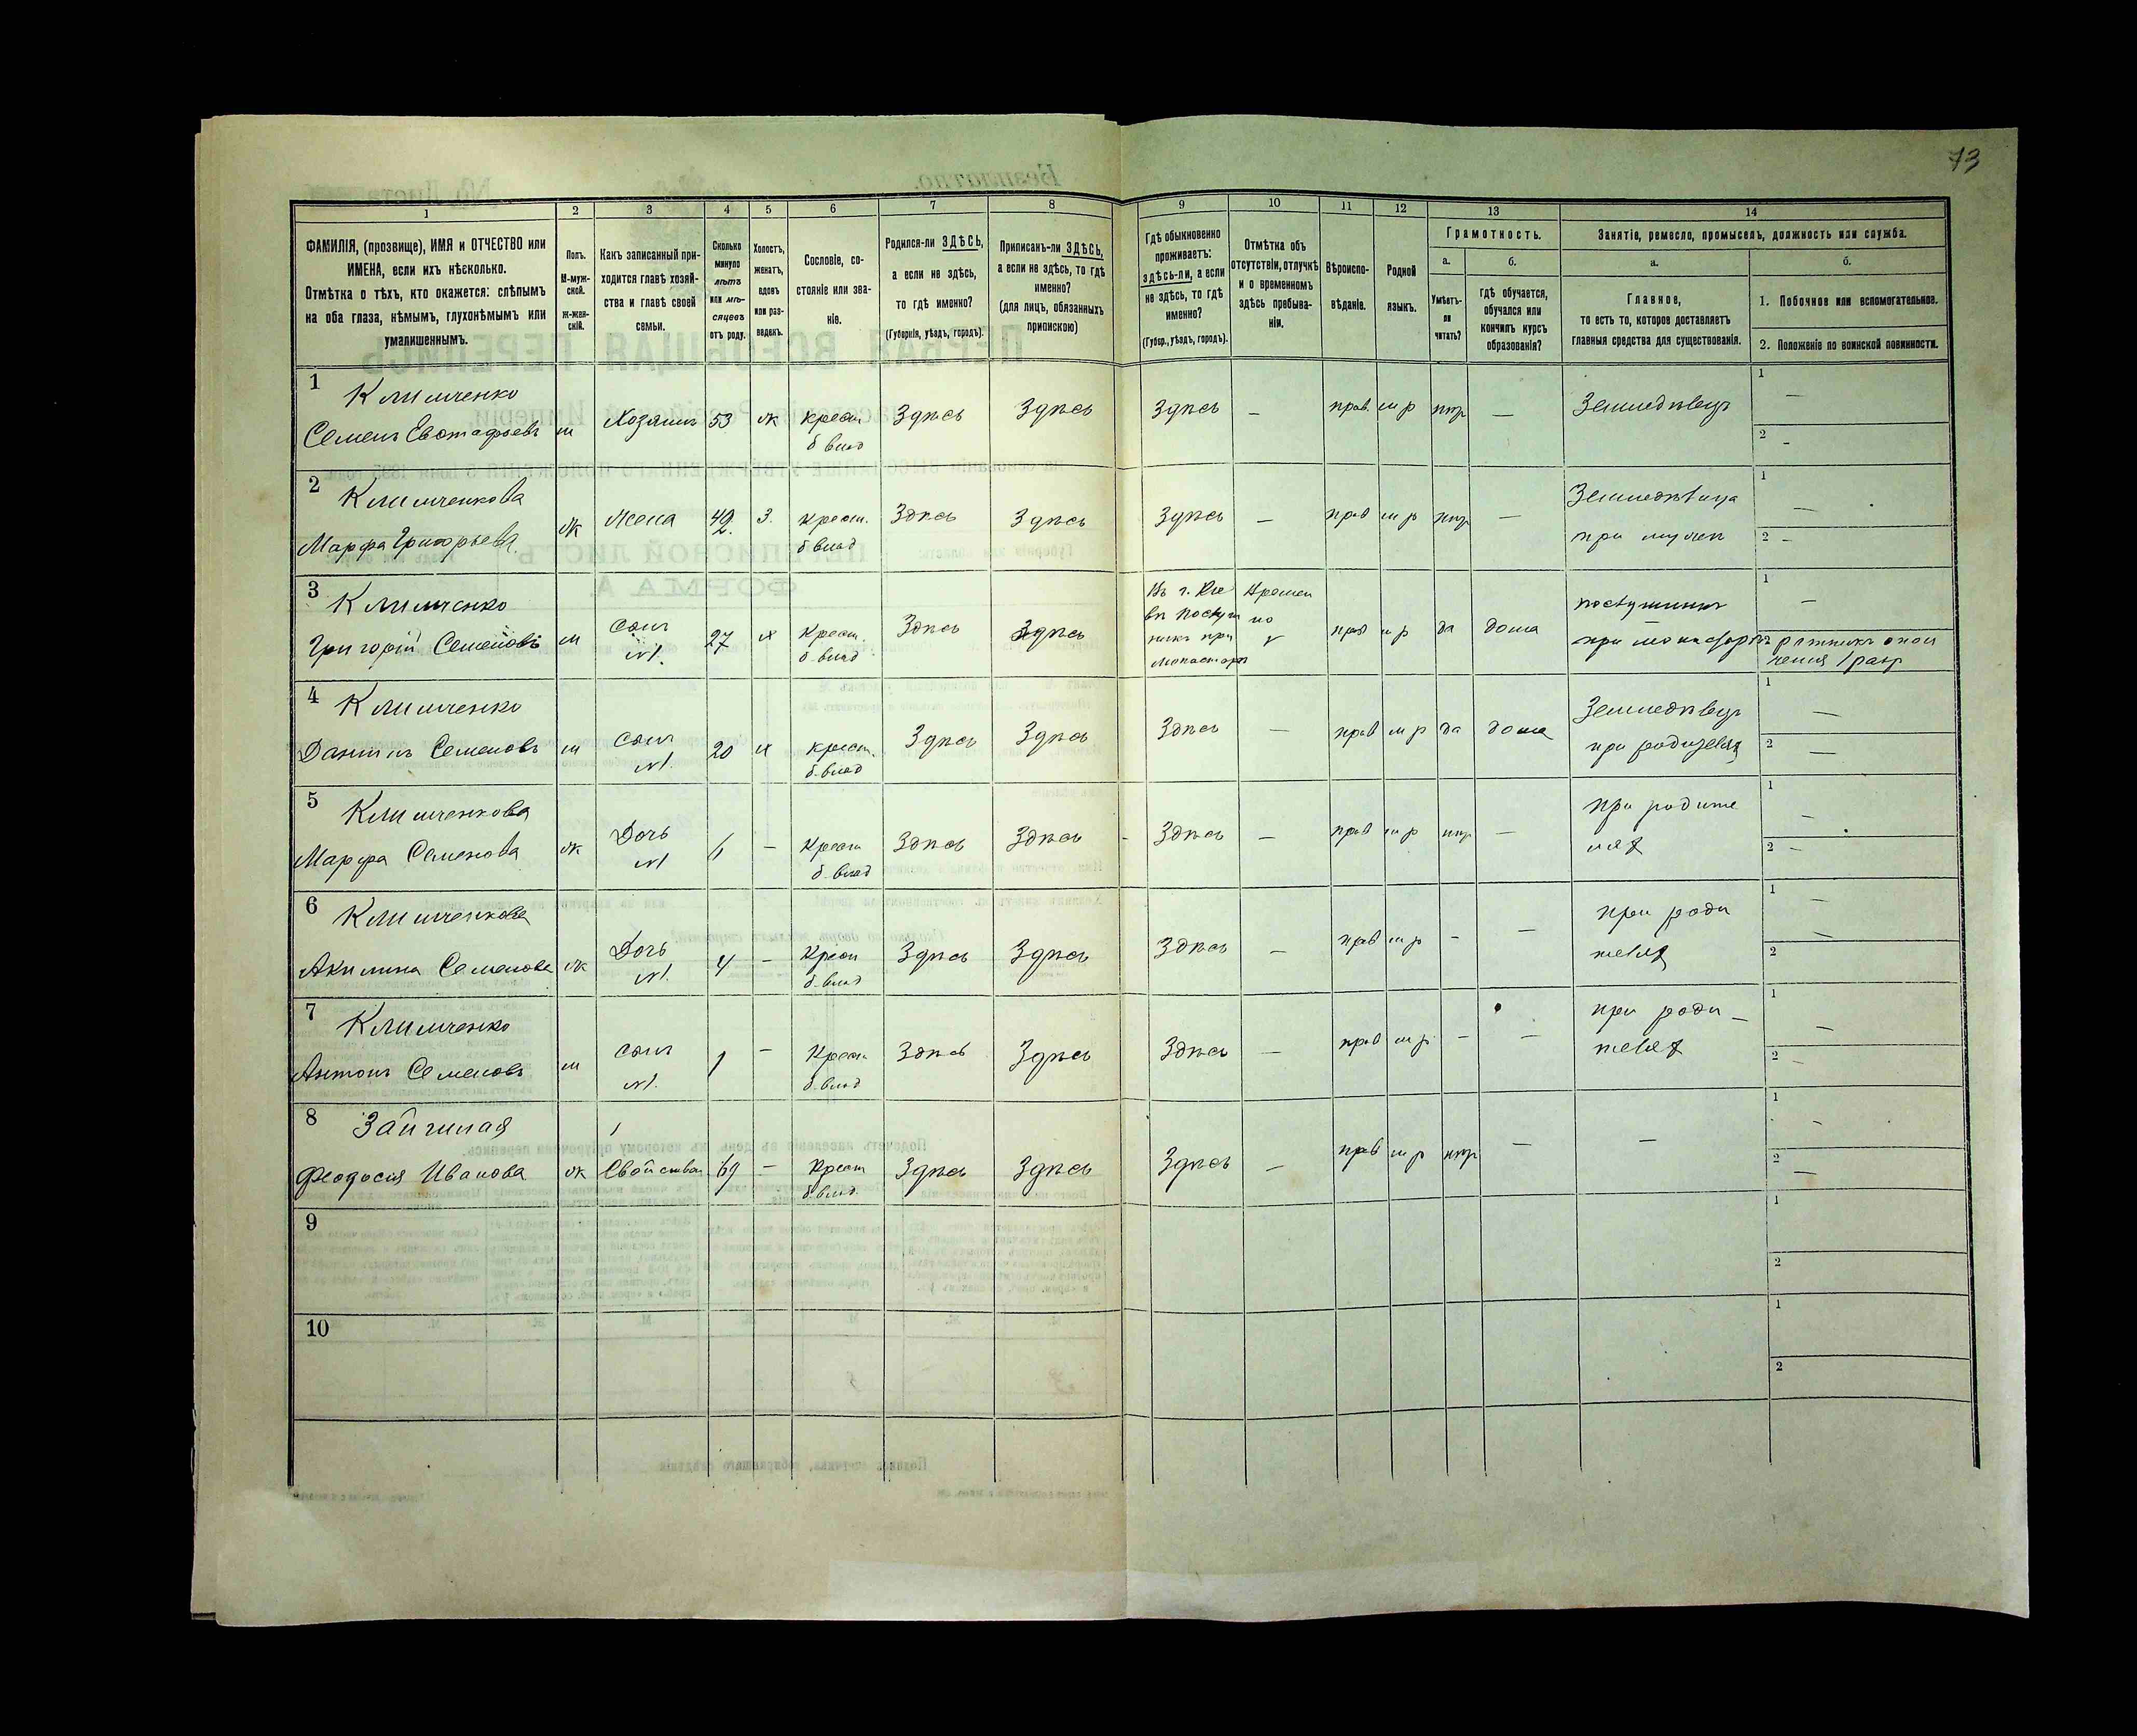 73
1 2 3 4 5 6 7 8 9 10 11 12 13 14
ФАМИЛІЯ, (прозвище), ИМЯ и ОТЧЕСТВО или ИМЕНА, если ихъ нѣсколько.
Отмѣтка о тѣхъ, кто окажется: слѣпымъ на оба глаза, нѣмымъ, глухонѣмымъ или умалишеннымъ.
Полъ. М-мужской. Ж-женскій.
Какъ записанный приходится главѣ хозяйства и главѣ своей семьи.
Сколько минуло лѣтъ или мѣсяцевъ отъ роду.
Холостъ, женатъ, вдовъ или разведенъ.
Сословіе, состояніе или званіе.
Родился-ли ЗДѢСЬ, а если не здѣсь, то гдѣ именно?
(Губернія, уѣздъ, городъ).
Приписанъ-ли ЗДѢСЬ, а если не здѣсь, то гдѣ именно?
(для лицъ, обязанныхъ припискою)
Гдѣ обыкновенно проживаетъ: здѣсь-ли, а если не здѣсь, то гдѣ именно?
(Губер., уѣздъ, городъ).
Отмѣтка объ отсутствіи, отлучкѣ и о временномъ здѣсь пребываніи.
Вѣроисповѣданіе.
Родной языкъ.
Грамотность.
а. Умѣетъ-ли читать?
б. Гдѣ обучается, обучался или кончилъ курсъ образованія?
Занятіе, ремесло, промыселъ, должность или служба.
а. Главное, то есть то, которое доставляетъ главныя средства для существованія.
б.
1. Побочное или вспомогательное.
2. Положеніе по воинской повинности.
1 Климченко
Семенъ Евстафьевъ м Хозяинъ 53 ж крест б влад Здѣсь Здѣсь Здѣсь — прав. м р нѣт — Земледѣлец 1 — 2 -
2 Климченкова
Марфа Григорьева ж Жена 49 з. крест. б влад Здѣсь Здѣсь Здѣсь — прав м р нѣт — 1 — 2 -
при мужѣ
3 Климченко
Григорій Семеновъ м сынъ №1. 27 х Крест б влад Здѣсь Здѣсь прав м р да дома 1 — 2
Въ г. Кіе
вѣ послуш
никъ при
монастырѣ
Времен
но
послушник
при монастырѣ
ратникъ опол
ченія 1 разр
4 Климченко
Семеновъ м сынъ №1. 20 х крест. б влад Здѣсь Здѣсь Здѣсь — прав м р да дома Земледѣлец 1 — 2 —
при родителях
5 Климченкова
Марфа Семенова ж Дочь №1 6 — Крест б влад Здѣсь Здѣсь - Здѣсь — прав м р нѣт — при родите 1 — 2 -
лях
6 Климченкова
Акилина Семенова ж Дочь №1. 4 — Крест б влад Здѣсь Здѣсь Здѣсь — прав м р - — при роди 1 — 2 —
телях
7 Климченко
Антонъ Семеновъ м сынъ №1. 1 — Крест б влад Здѣсь Здѣсь Здѣсь — прав м р - — при роди- 1 — 2 —
телях
8
Феодосія Иванова ж 69 — Крест б влад. Здѣсь Здѣсь Здѣсь — прав м р нѣт — — 1 - 2 —
9 1 2
10 1 2